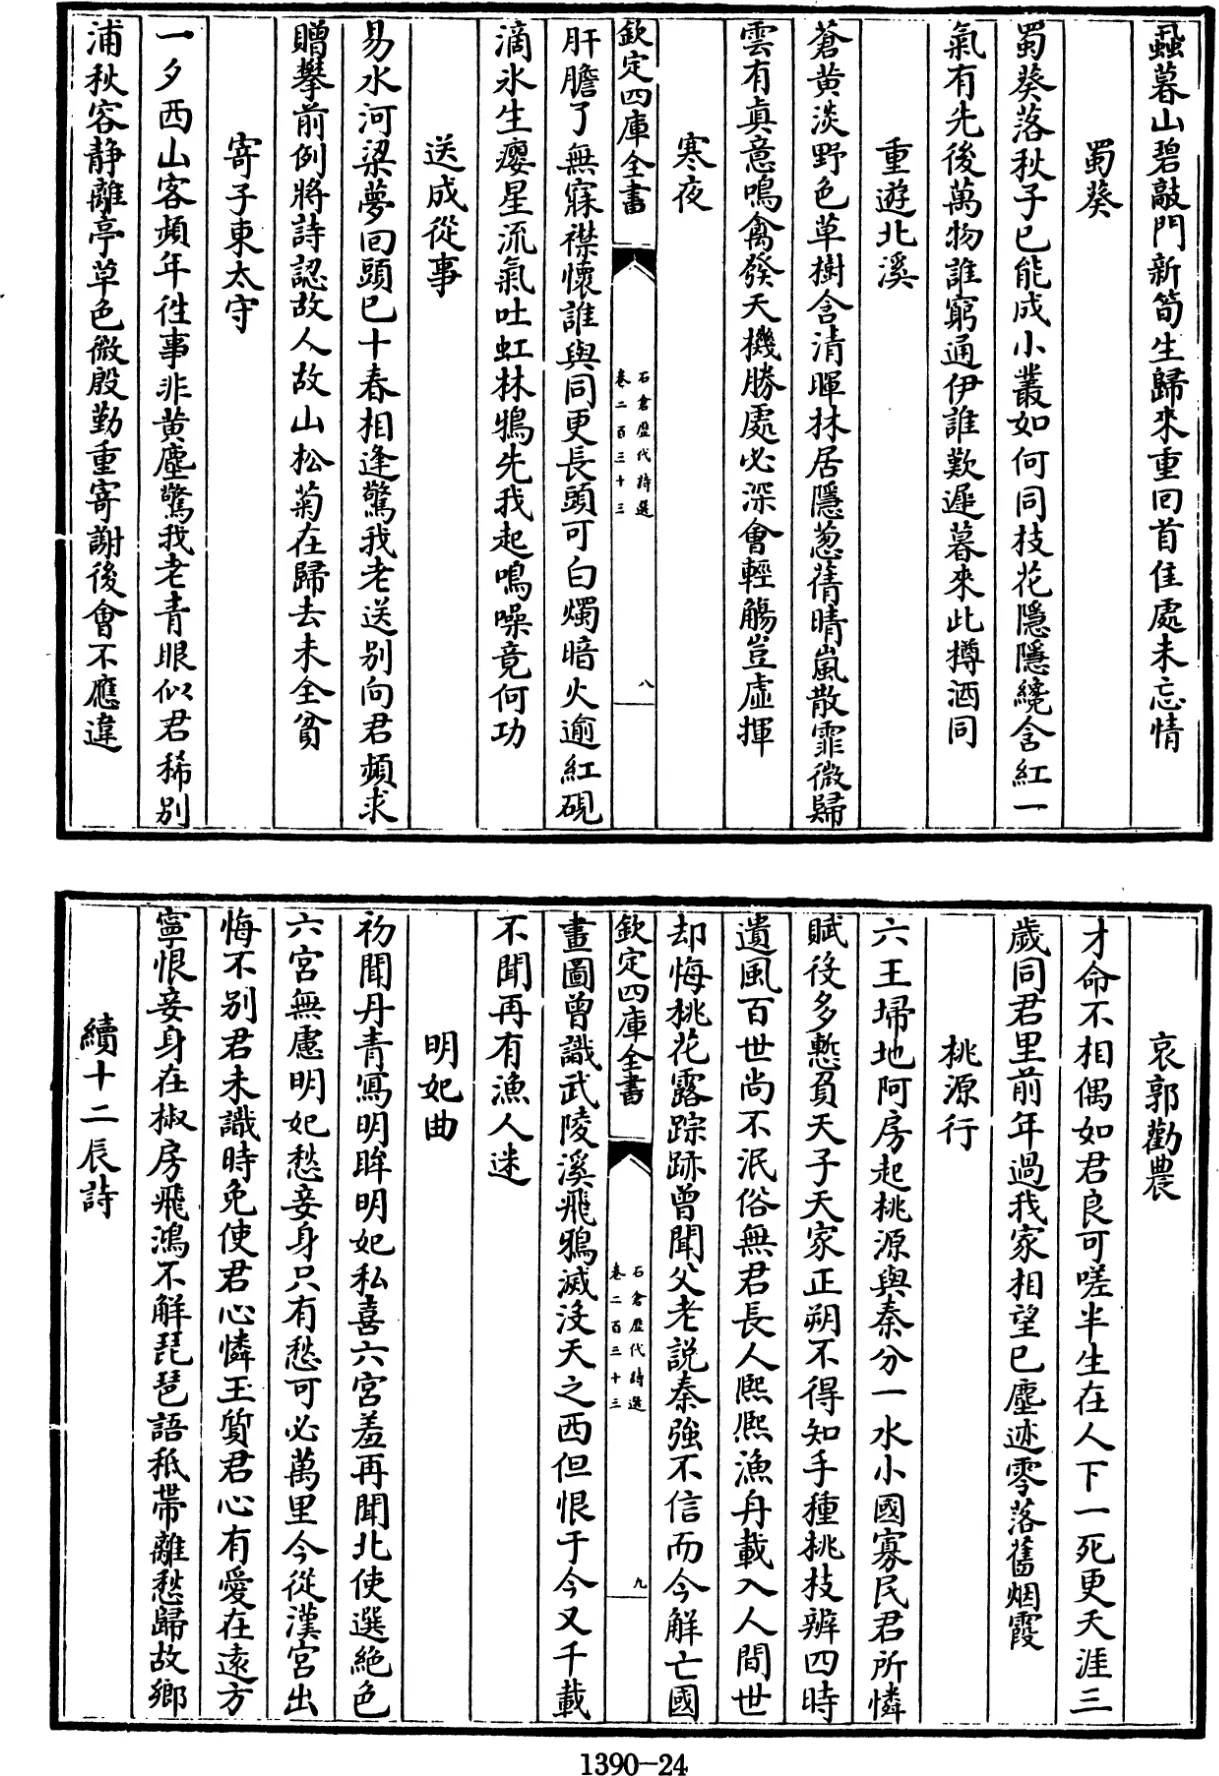 蝨暮山碧敲門新筍生歸來重回首佳處未忘情
蜀葵
蜀葵落秋子已能成小叢如何同技花隱隱纔含紅一
氣有先後萬物誰窮通伊誰歎遲暮來此樽酒同
重遊北溪
蒼黄淡野色草樹含清暉林居隱葱蒨晴嵐散霏微歸
雲有真意鳴禽發天機勝處必深會輕觴豈虛揮
寒夜
欽定四庫全書
石倉歷代詩選
卷二百三十三
八
肝膽了無寐襟懷誰與同更長頭可白燭暗火逾紅硯
滴氷生癭星流氣吐虹林鴉先我起鳴噪竟何功
送成從事
易水河梁夢回頭已十春相逢驚我老送别向君頻求
贈攀前例將詩認故人故山松菊在歸去未全貧
寄子東太守
一夕西山客頻年往事非黄塵驚我老青眼似君稀别
浦秋容静離亭草色微殷勤重寄謝後會不應違
哀郭勸農
才命不相偶如君良可嗟半生在人下一死更天涯三
歲同君里前年過我家相望已塵迹零落舊烟霞
桃源行
六王掃地阿房起桃源與秦分一水小國寡民君所憐
賦役多慙負天子天家正朔不得知手種桃技辨四時
遺風百世尚不泯俗無君長人熙熙漁舟載入人間世
却悔桃花露踪跡曾聞父老説秦強不信而今解亡國
欽定四庫全書
石倉歷代詩選
卷二百三十三
九
畫圖曾識武陵溪飛鴉滅没天之西但恨于今又千載
不聞再有漁人迷
明妃曲
初聞丹青寫明眸明妃私喜六宮羞再聞北使選絶色
六宮無慮明妃愁妾身只有愁可必萬里今從漢宮出
悔不别君未識時免使君心憐玉質君心有愛在遠方
寧恨妾身在椒房飛鴻不解琵琶語秪帶離愁歸故鄉
續十二辰詩
1390—24